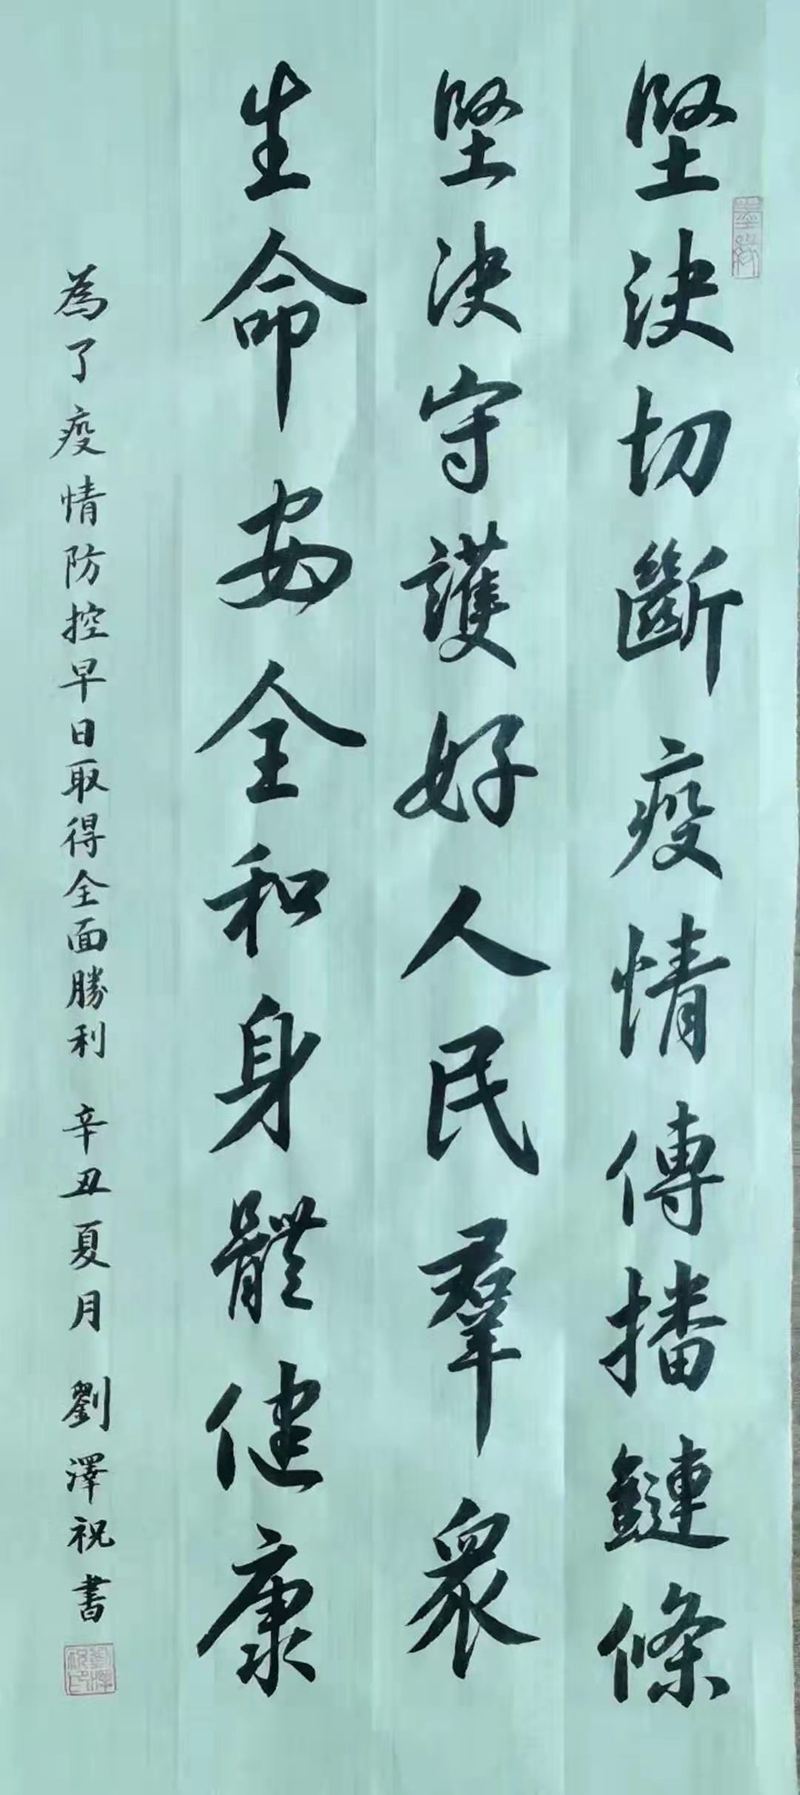 堅決切斷疫情傳播鏈條
堅決守護好人民羣衆
生命安全和身體健康
為了疫情防控早日取得全面勝利 辛丑夏月 劉澤祝書